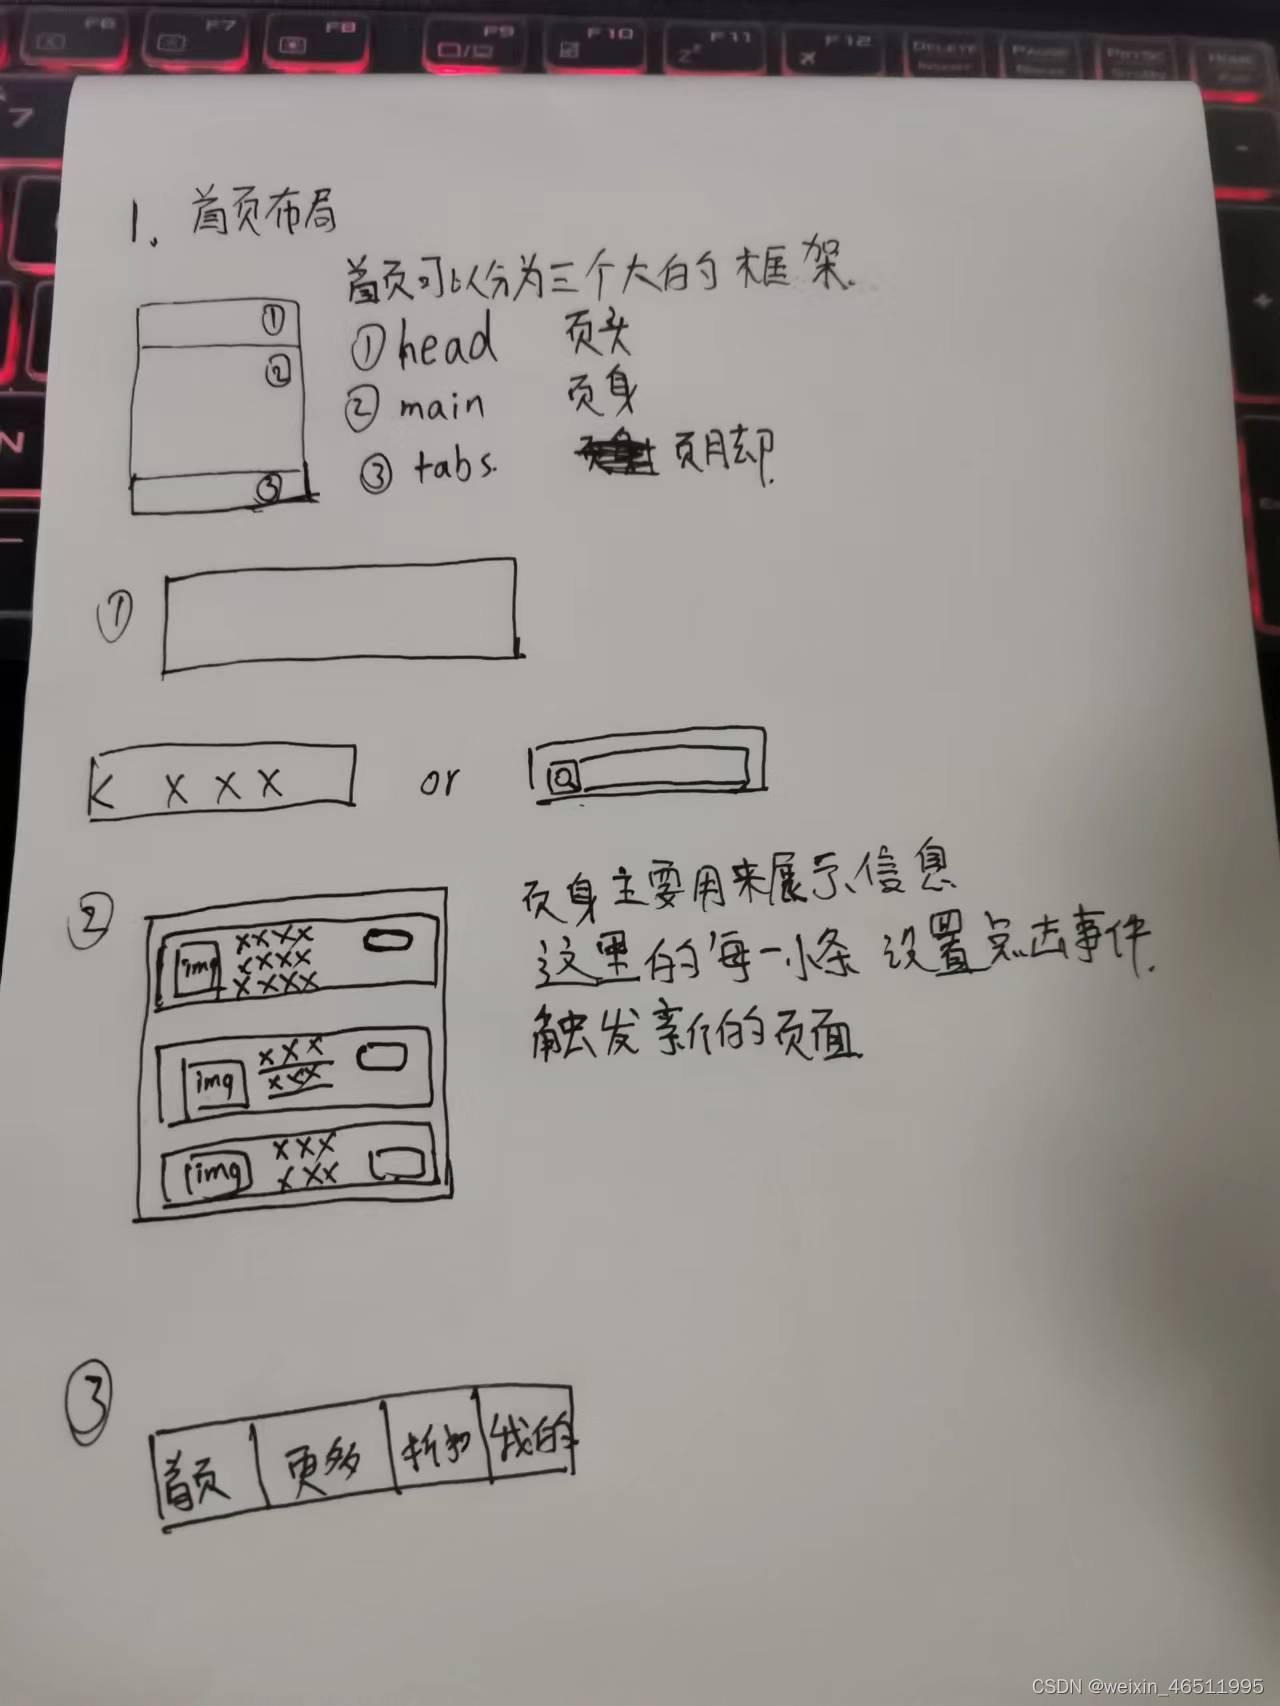 F6 F7 F8 F9 F10 F11 F12 DELETE PAUSE PRTSC HOME
7
N
1. 首页布局
首页可以分为三个大的框架.
① ② ③
① head 页头
② main 页身
③ tabs. 页脚.
①
< X X X or
②
页身主要用来展示信息
这里的每一小条 设置点击事件.
触发新的页面
img xxxx
xxxx
xxxx
img xxx
xxx
img xxx
xxx
③
首页 更多 折扣 我的
CSDN @weixin_46511995